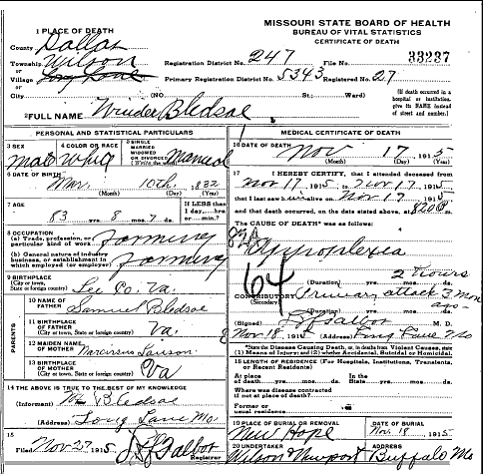 MISSOURI STATE BOARD OF HEALTH
BUREAU OF VITAL STATISTICS
CERTIFICATE OF DEATH
1 PLACE OF DEATH
County Dallas
Township Wilson
or
Village Long Lane
City (NO. St.; Ward)
Registration District No. 247 File No. 33237
Primary Registration District No. 5343 Registered No. 27
(If death occurred in a hospital or institution, give its NAME instead of street and number.)
2 FULL NAME Bledsoe
PERSONAL AND STATISTICAL PARTICULARS
3 SEX Male
4 COLOR OR RACE White
5 SINGLE MARRIED WIDOWED OR DIVORCED (Write the word) Married
6 DATE OF BIRTH Mar. 10th, 1832
(Month) (Day) (Year)
7 AGE 83 yrs. 8 mos. 7 ds.
If LESS than 1 day, hrs. or min.?
8 OCCUPATION
(a) Trade, profession, or particular kind of work farming
(b) General nature of industry, business, or establishment in which employed (or employer) farming
9 BIRTHPLACE
(City or town, State or foreign country) Lee Co. Va.
PARENTS
10 NAME OF FATHER Samuel Bledsoe
11 BIRTHPLACE OF FATHER
(City or town, State or foreign country) Va.
12 MAIDEN NAME OF MOTHER Lawson
13 BIRTHPLACE OF MOTHER
(City or town, State or foreign country) Va
14 THE ABOVE IS TRUE TO THE BEST OF MY KNOWLEDGE
(Informant) Bledsoe
(Address) Long Lane Mo
15
Filed Nov 27 1915 Talbot
Registrar
MEDICAL CERTIFICATE OF DEATH
16 DATE OF DEATH Nov 17 1915
(Month) (Day) (Year)
17 I HEREBY CERTIFY, that I attended deceased from
Nov 17 1915, to Nov 17 1915
that I last saw alive on Nov 17 1915
and that death occurred, on the date stated above, at 820 m.
The CAUSE OF DEATH* was as follows:
82A
Appoplexia
64
(Duration) yrs. mos. 2 hours
CONTRIBUTORY Primary attack 3 mon
(Secondary) ago
(Duration) yrs. mos. ds.
(Signed) Talbot M. D.
Nov 18 1915 (Address) Long Lane Mo
*State the Disease Causing Death, or, in deaths from Violent Causes, state (1) Means of Injury; and (2) whether Accidental, Suicidal or Homicidal.
18 LENGTH OF RESIDENCE (For Hospitals, Institutions, Transients, or Recent Residents)
At place of death yrs. mos. ds. In the State yrs. mos. ds.
Where was disease contracted
if not at place of death?
Former or usual residence
19 PLACE OF BURIAL OR REMOVAL New Hope
DATE OF BURIAL Nov. 19 1915
20 UNDERTAKER Wilson Newport
ADDRESS Buffalo Mo